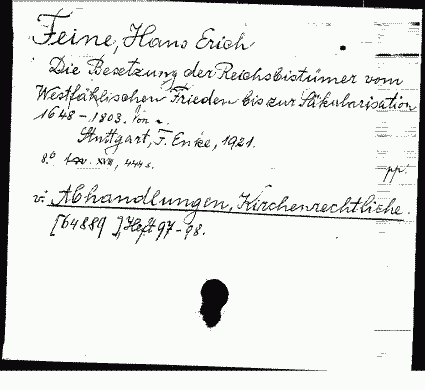 Feine, Hans Erich
Die Besetzung der Reichsbistümer vom
Westfählischen Frieden bis zur Säkularisation
1648-1803. Von -.
Stuttgart, F. Enke, 1921.
8.° XVIII, 444 s.
pp.
vi: Abhandlungen, Kirchenrechtliche.
[64889 ], Heft 97-98.